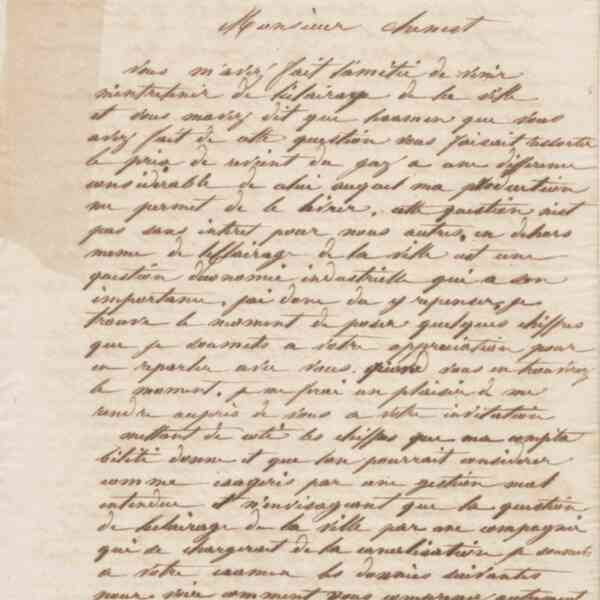 Monsieur
vous m'avez fait l'amitié de venir
m'entretenir de l'éclairage de la ville
et vous mavez dit que l'examen que vous
avez fait de cette question vous faisait ressortir
le prix de revient du gaz a une différence
considérable de celui auquel ma production
me permet de le livrer, cette question n'est
pas sans intéret pour nous autres, en dehors
meme de l'éclairage de la ville est une
question d'économie industrielle qui a son
importance, j'ai donc du y repenser, je
trouve le moment de poser quelques chiffres
que je soumets a votre appréciation pour
en reparler avec vous. quand vous en trouverez
le moment, je me ferai un plaisir de me
rendre auprès de vous a votre invitation
mettant de coté les chiffres que ma compta
bilité donne et que l'on pourrait considerer
comme exagerés par une gestion mal
entendue et n'envisageant que la question
de l'éclairage de la ville par une compagnie
qui se chargerait de la canalisation je soumets
a votre examen les données suivantes
pour voir comment vous comprenez autrement